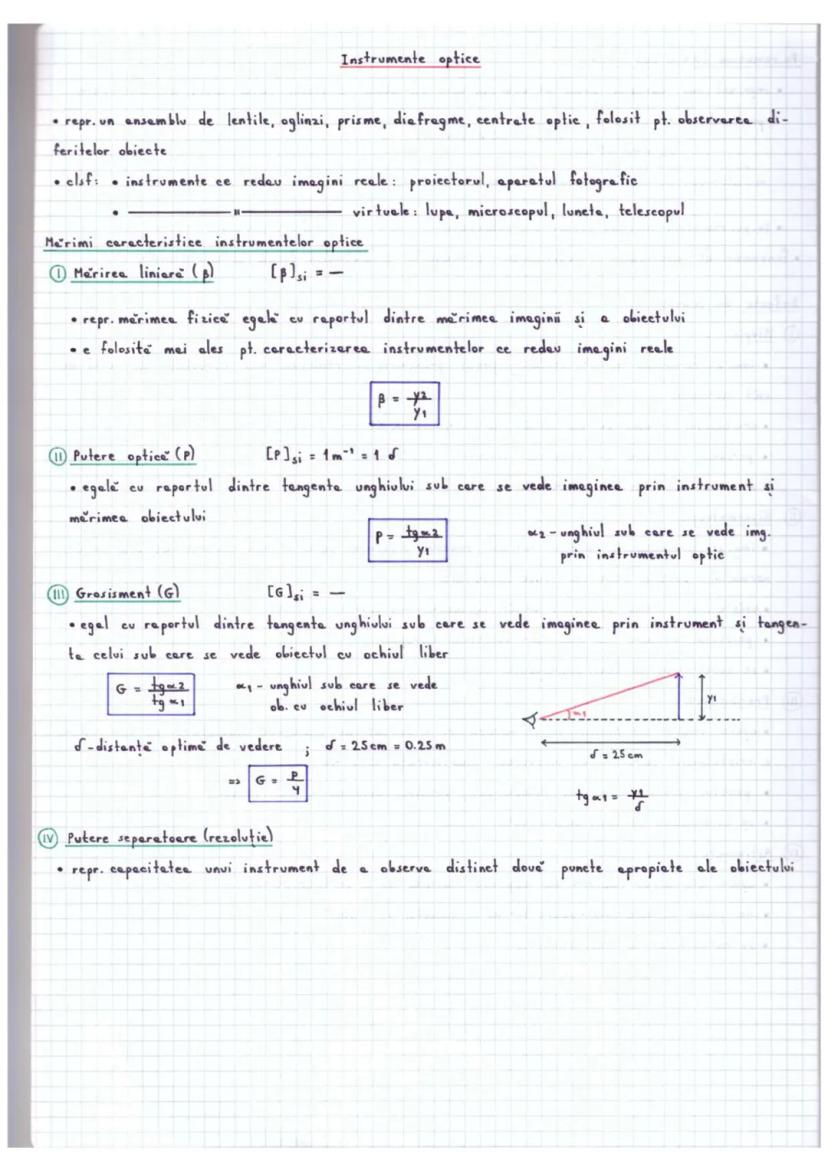 Instrumente optice
• repr. un ansamblu de lentile, oglinzi, prisme, diafragme, centrate optic, folosit pt. observarea di-
feritelor obiecte
• clsf: • instrumente ce redau imagini reale: proiectorul, aparatul fotografic
• ——— " ——— virtuale: lupa, microscopul, luneta, telescopul
Mărimi caracteristice instrumentelor optice
I Mărirea liniară (β) [β]si = —
• repr. mărimea fizică egală cu raportul dintre mărimea imaginii și a obiectului
• e folosită mai ales pt. caracterizarea instrumentelor ce redau imagini reale
β = y2/y1
II Putere optică (P) [P]si = 1m⁻¹ = 1 δ
• egală cu raportul dintre tangenta unghiului sub care se vede imaginea prin instrument și
mărimea obiectului
P = tgα2/y1 α2 - unghiul sub care se vede img.
prin instrumentul optic
III Grosisment (G) [G]si = —
• egal cu raportul dintre tangenta unghiului sub care se vede imaginea prin instrument și tangen-
ta celui sub care se vede obiectul cu ochiul liber
G = tgα2/tgα1 α1 - unghiul sub care se vede
ob. cu ochiul liber
α1
y1
δ - distanță optimă de vedere ; δ = 25cm = 0.25m
δ = 25cm
=> G = P/4
tgα1 = y1/δ
IV Putere separatoare (rezoluție)
• repr. capacitatea unui instrument de a observa distinct două puncte apropiate ale obiectului